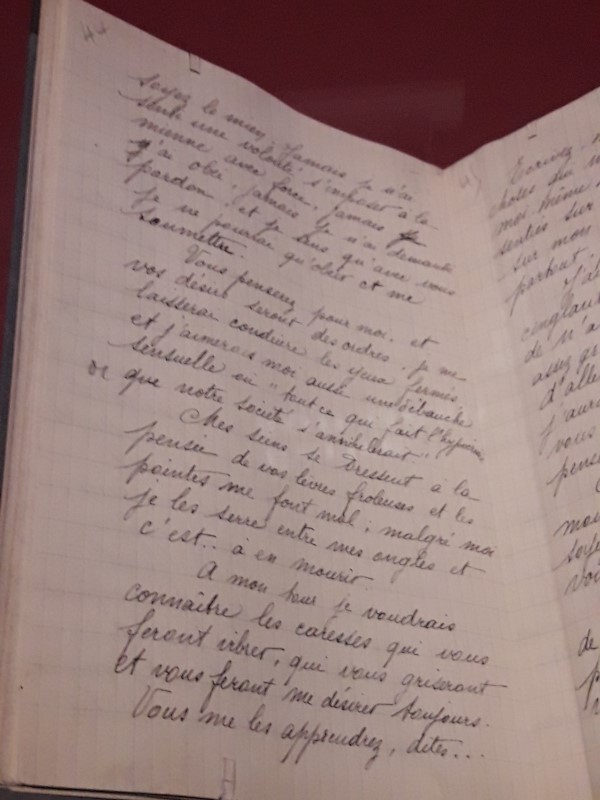 44
soyez le mien. Jamais je n'ai
senti une volonté s'imposer à la
mienne avec force, jamais je
n'ai obéi, jamais je n'ai demandé
pardon, et je sens qu'avec vous
je ne pourrai qu'obéir et me
soumettre.
Vous penserez pour moi, et
vos désirs seront des ordres, je me
laisserai conduire les yeux fermés
et j'aimerais moi aussi une débauche
sensuelle où "tout ce qui fait l'hypocrisie
de notre société s'annihilerait"
Mes seins se dressent à la
pensée de vos lèvres frôleuses et les
pointes me font mal ; malgré moi
je les serre entre mes ongles et
c'est.. à en mourir.
A mon tour je voudrais
connaître les caresses qui vous
feront vibrer, qui vous griseront
et vous feront me désirer toujours.
Vous me les apprendrez, dites...
Ecrivez
choses
moi-même
sentiés sur
sur mon
partout,
J'ai
cinglant
de n'a
assez
d'alle
j'aura
vous
pense
mon
soye
voi
de